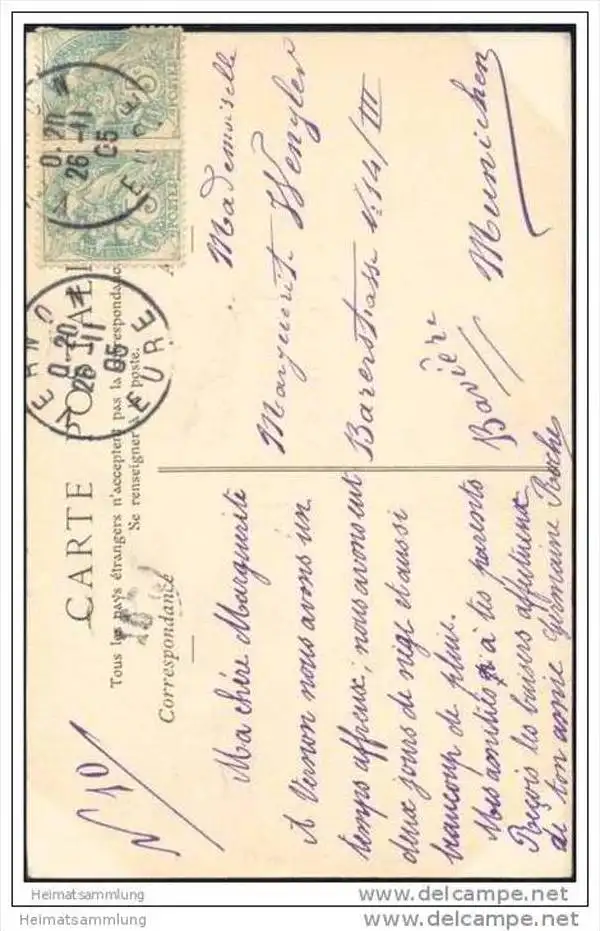 N° 10
CARTE POSTALE
Tous les pays étrangers n'acceptent pas la correspondance
Se renseigner à la poste.
Correspondance
Ma chère Marguerite
A Vernon nous avons un
temps affreux; nous avons eut
deux jours de neige et aussi
beaucoup de pluie.
Mes amitiés à tes parents
Reçois les baisers affectueux
de ton amie Germaine Roche
Mademoiselle
Marguerite Wengler
Barerstrasse N: 14/III
Munichen
Bavière
POSTES
POSTES
0.20
26 -11
05
EURE
VERNON
0.20
26 -11
05
EURE
Heimatsammlung
delcampe.net
Heimatsammlung
delcampe.net